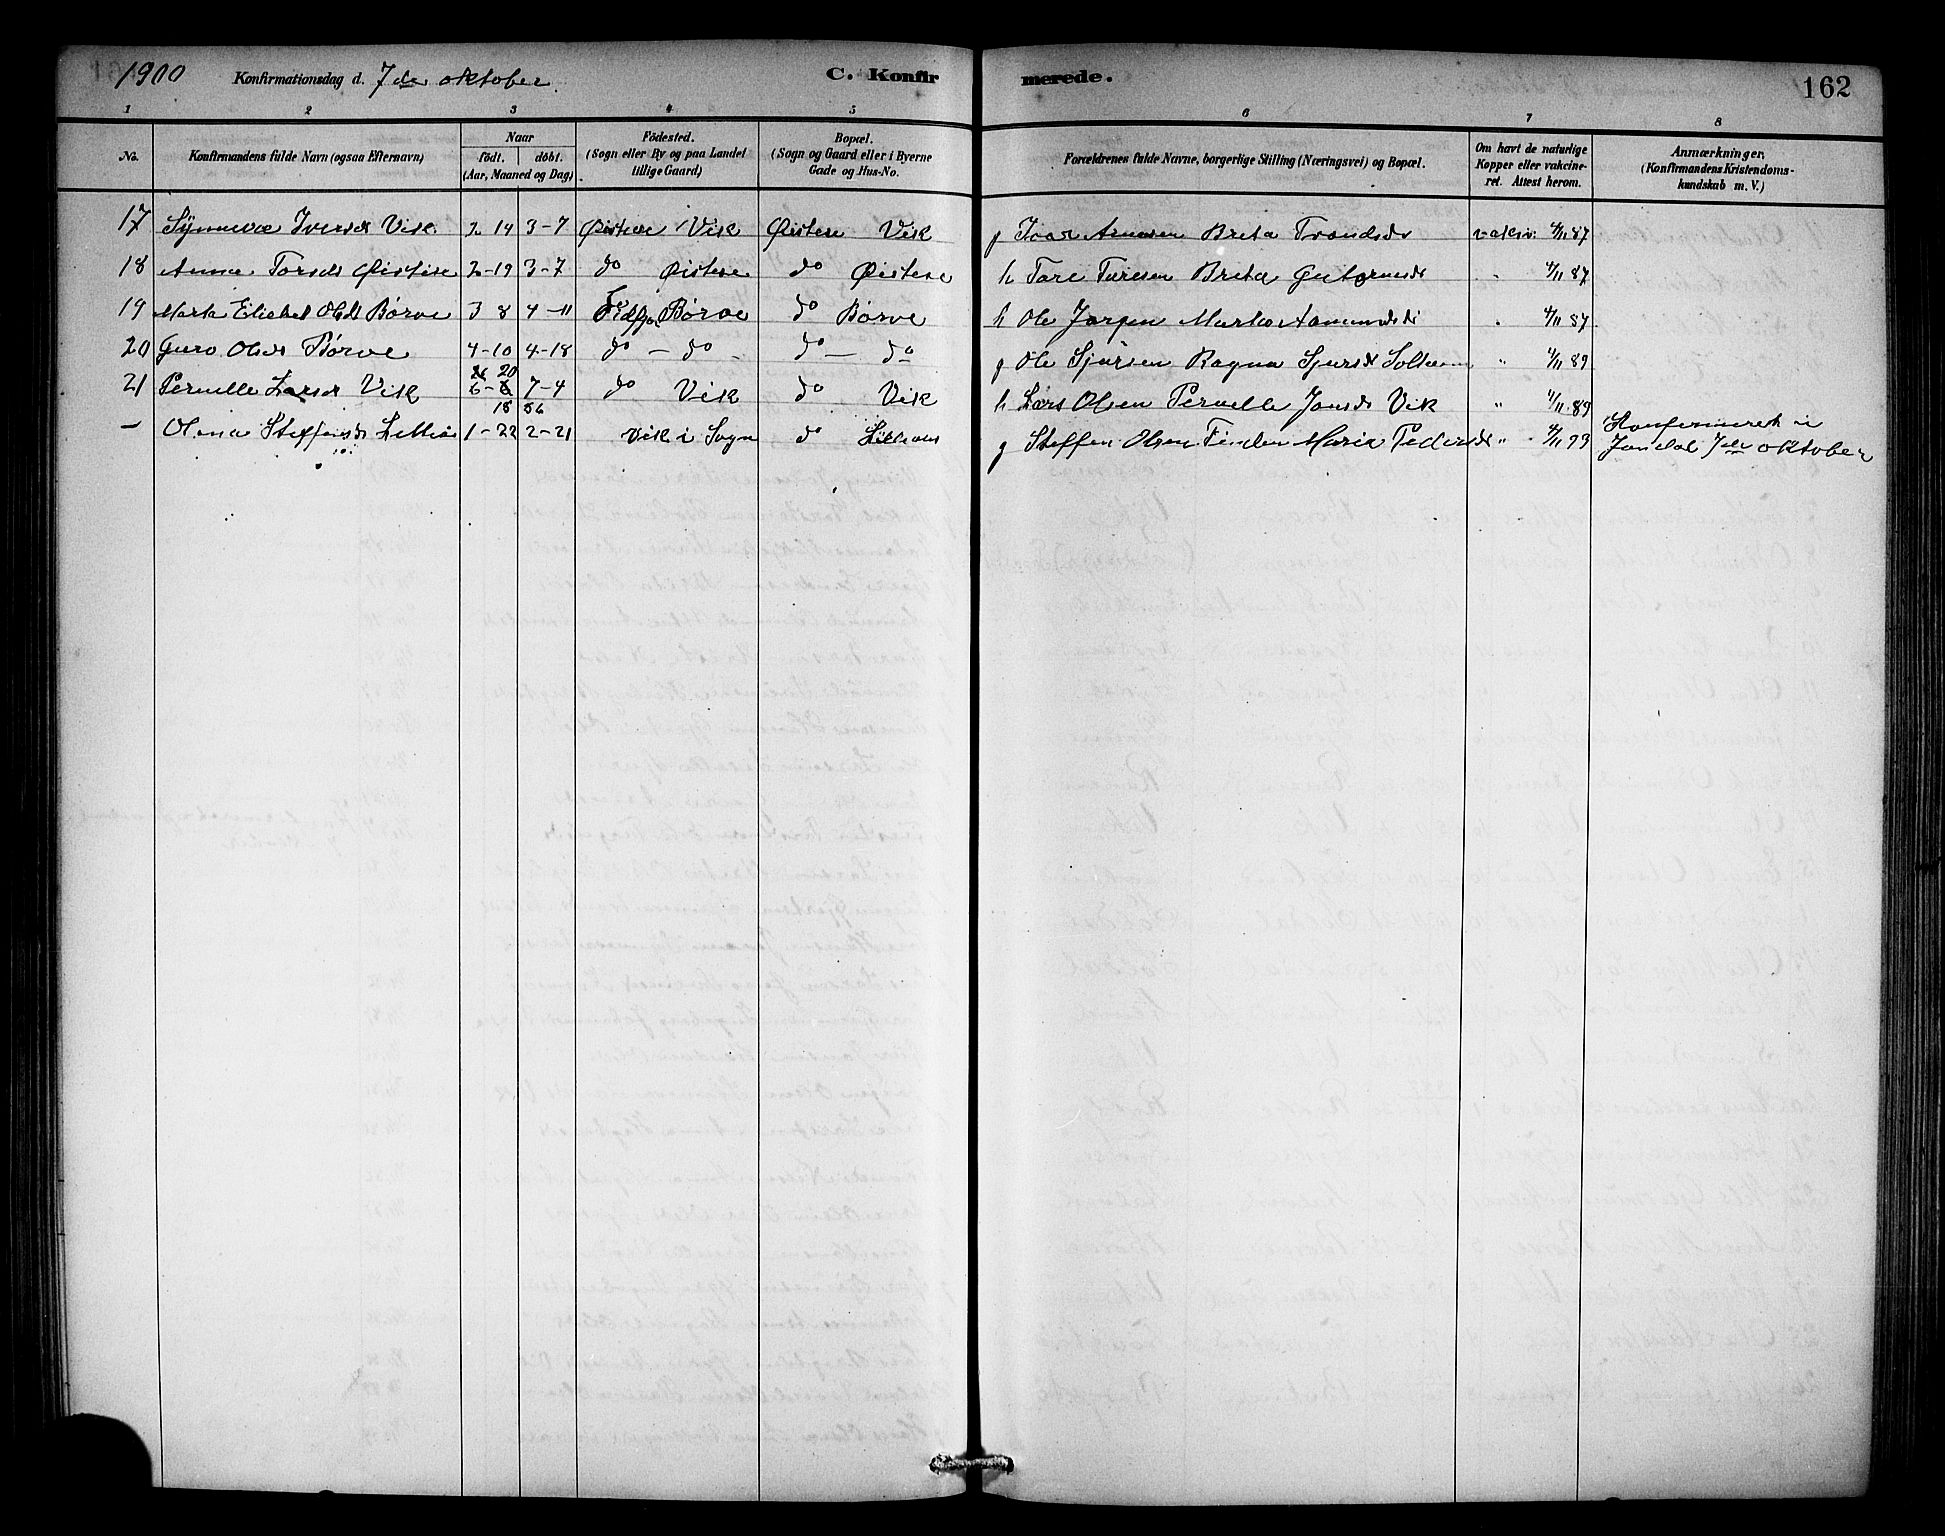 1900 Konfirmationsdag d. 7de oktober. C. Konfirmerede. 162
1 2 3 4 5 6 7 8
No. Konfirmandens fulde Navn (ogsaa Efternavn) Naar födt. döbt. (Aar, Maaned og Dag) Födested. (Sogn eller By og paa Landet tillige Gaard) Bopæl. (Sogn og Gaard eller i Byerne Gade og Hus-No. Forældrenes fulde Navne, borgerlige Stilling (Næringsvei) og Bopæl. Om havt de naturlige Kopper eller vakcineret. Attest herom. Anmærkninger, (Konfirmandens Kristendomskundskab m. V.)
17 Synneva Iversd Vik 2 14 3-7 Östese Vik Östese Vik g Ivar Arnesen Breta Trondsdr vaksin. 4/11 87
18 Anna Torsd Östese 2-19 3-7 do Östese do Östese h Tore Toresen Breta Guttormsdr " 4/11 87
19 Marta Elisabet Olsd Börve 3 8 4-11 Börve do Börve h Ole Marta Aamundsdr " 4/11 87
20 Guro Olsd Börve 4-10 4-18 do - do - do - do g Ole Sjursen Ragna Sjursd " 4/11 89
21 Pernelle Larsd Vik 6- 20 7-4 do Vik do Vik h Lars Olsen Pernelle Jonsdr Vik " 4/11 89
— Olina Steffensdr 1-22 18 86 2-21 Vik i Sogn do g Steffen Olsen Finden Maria Pedersdr " 4/11 93 Konfirmeret i Jondal 7de oktober